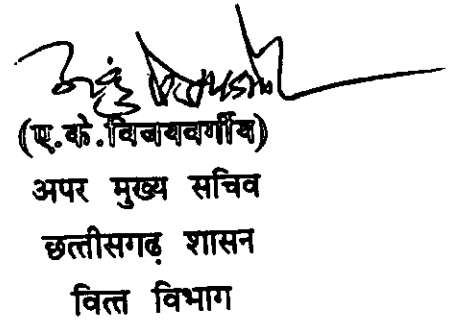 (ए.के.विजयवर्गीय)
अपर मुख्य सचिव
छत्तीसगढ़ शासन
वित्त विभाग